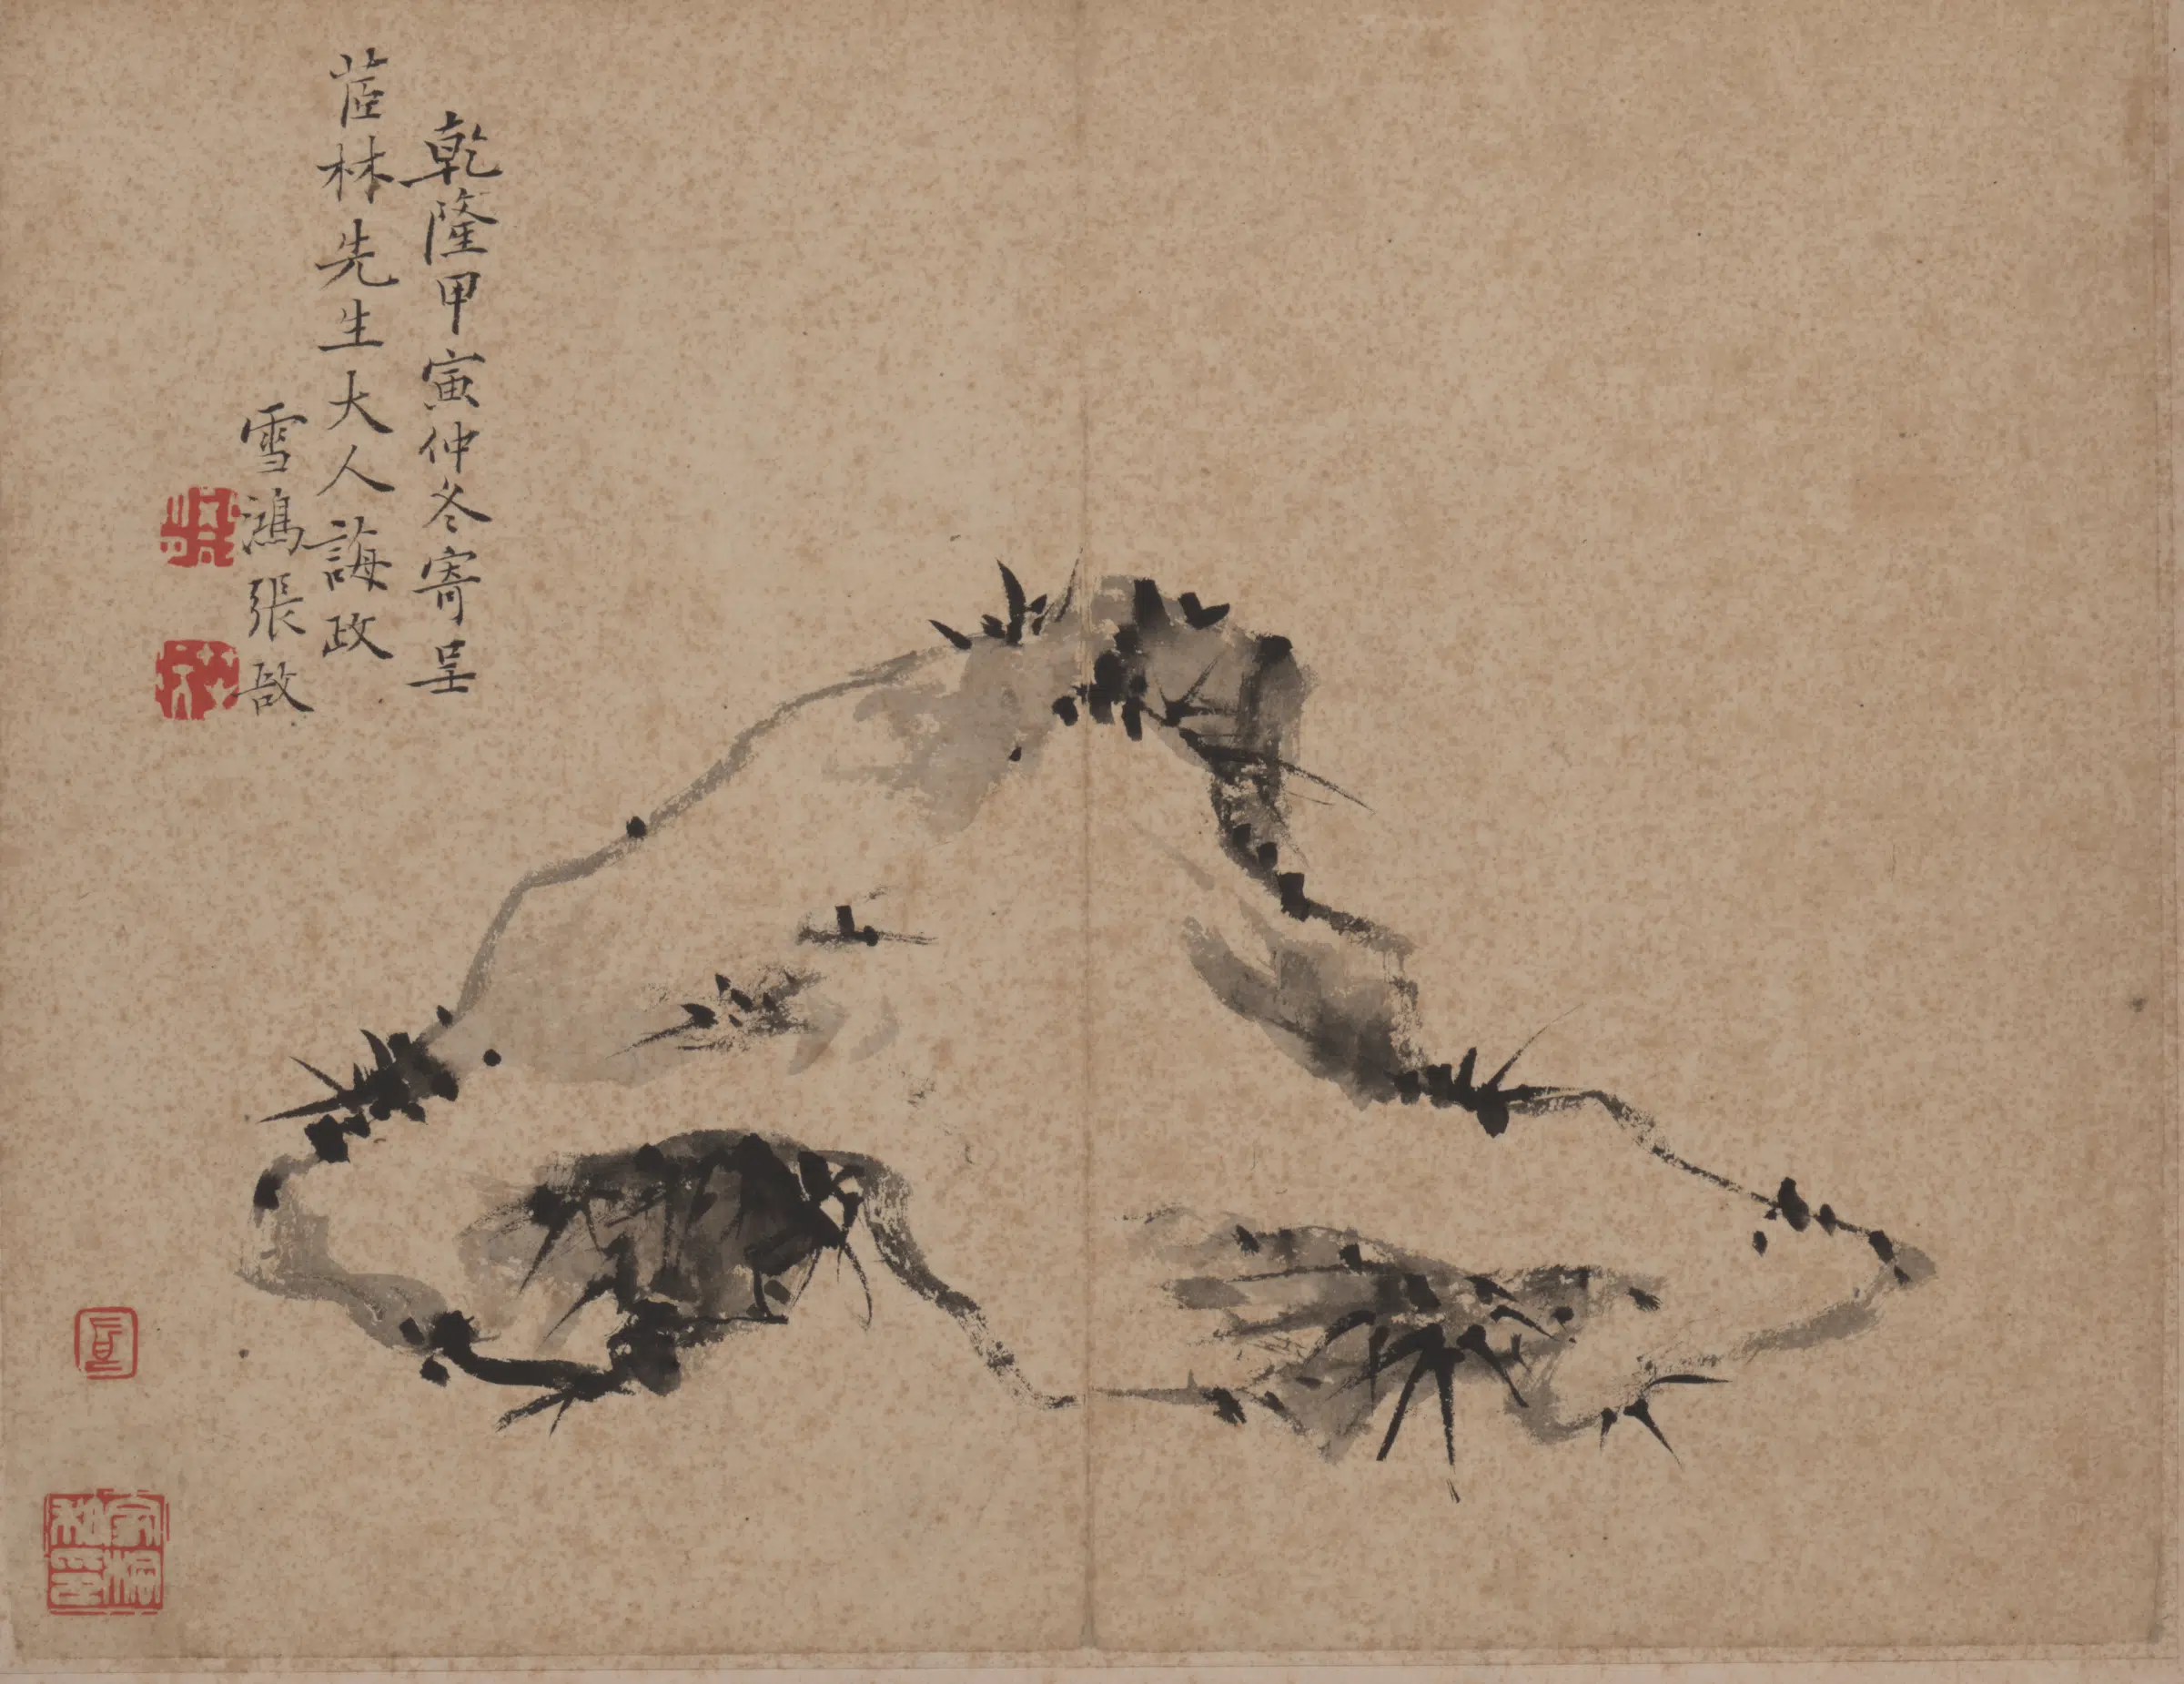 乾隆甲寅仲冬寄呈
茝林先生大人誨政
雪鴻張敔